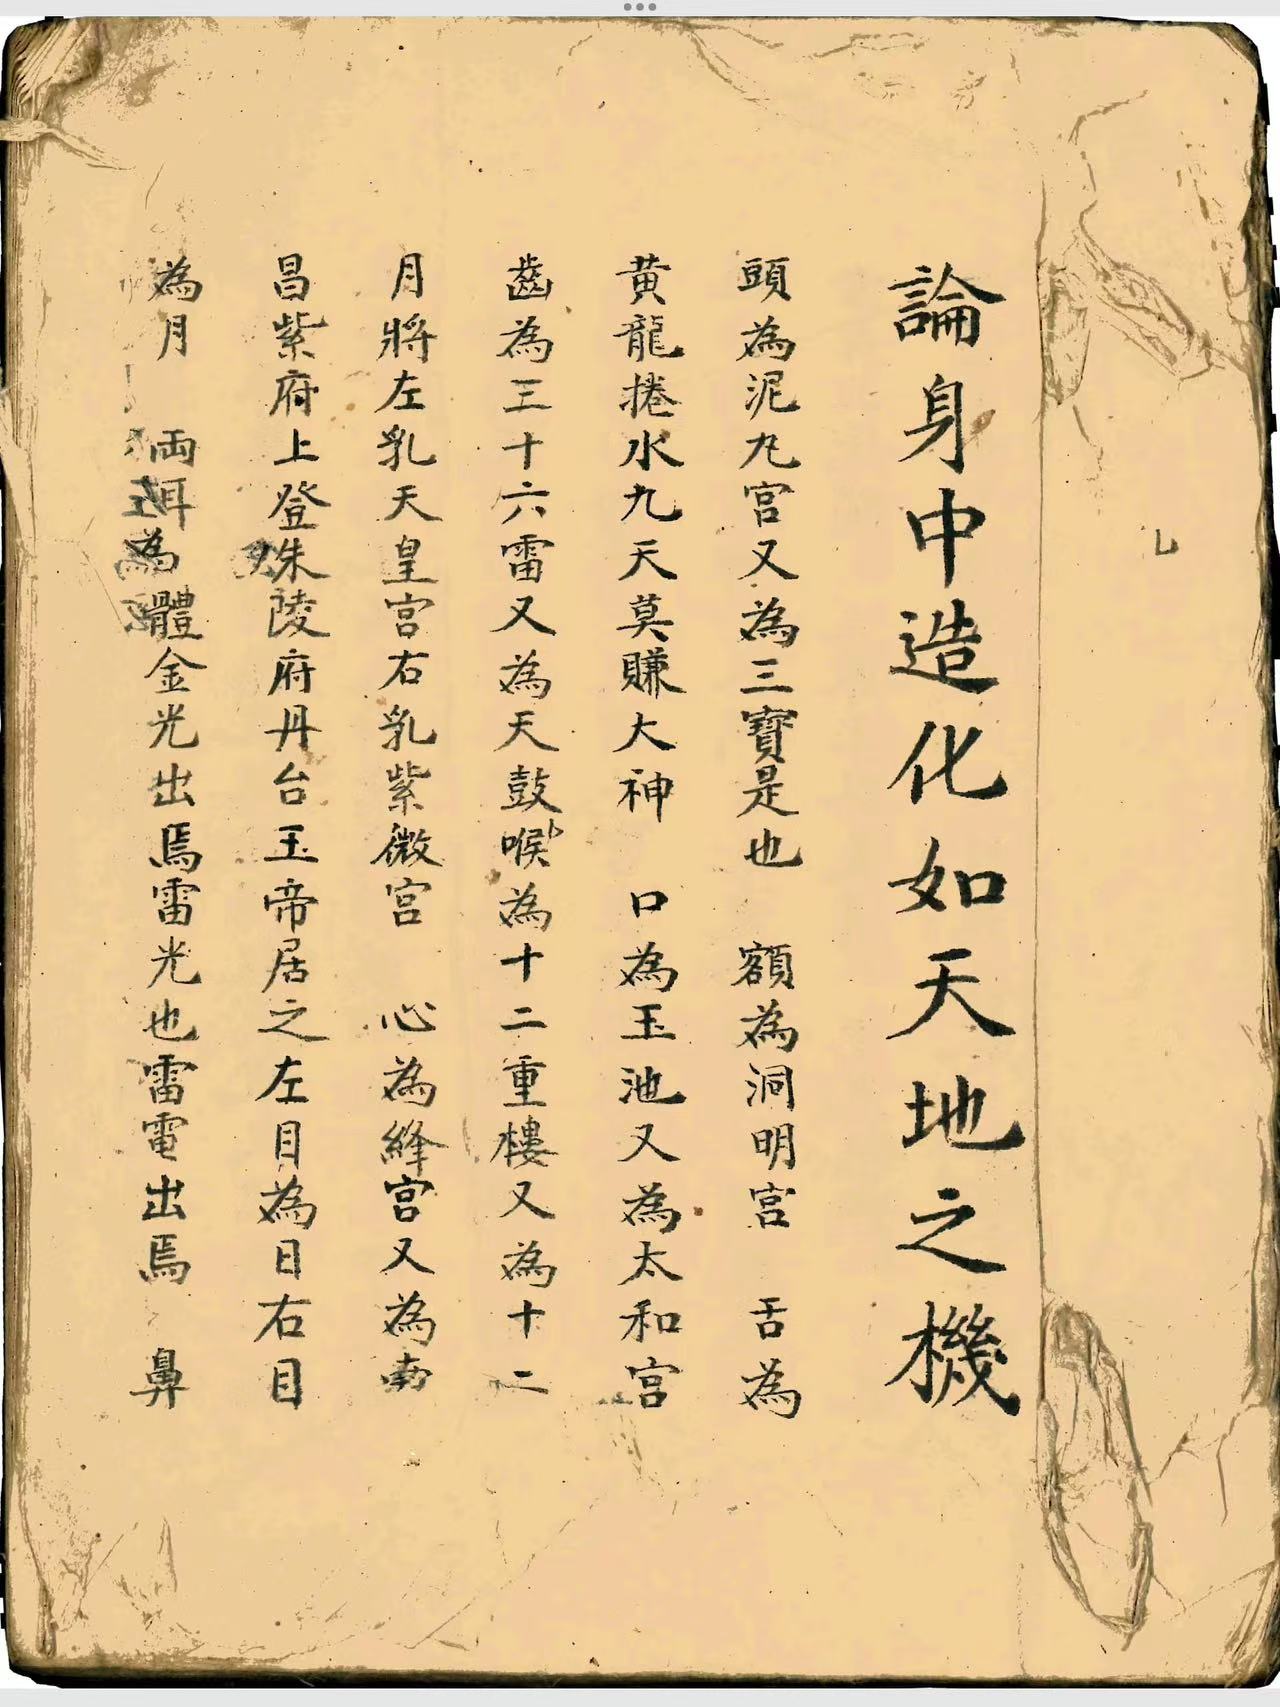 論身中造化如天地之機
頭為泥九宮又為三寶是也 額為洞明宮 舌為
黃龍捲水九天莫賺大神 口為玉池又為太和宮
齒為三十六雷又為天鼓喉為十二重樓又為十二
月將左乳天皇宮右乳紫微宮 心為絳宮又為南
昌紫府上登朱陵府丹台玉帝居之左目為日右目
為月 両耳為體金光出焉雷光也雷電出焉 鼻